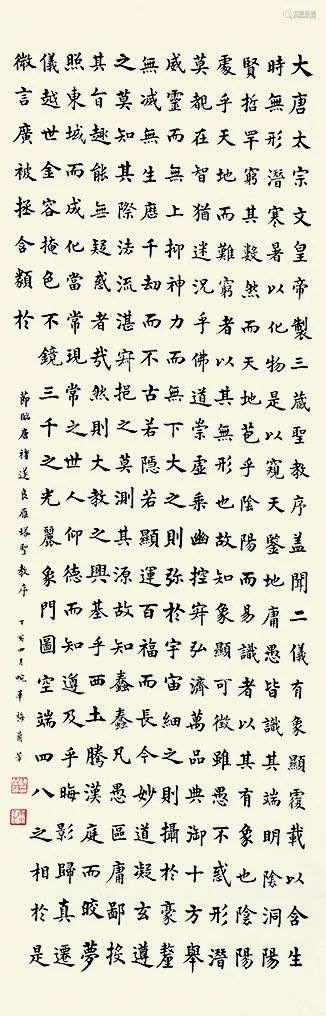 大唐太宗文皇帝製三蔵聖教序蓋聞二儀有象顯覆載以含生
時無形潛寒暑以化物是以窺天鑒地庸愚皆識其端明陰洞陽
賢哲罕窮其數然而天地苞乎陰陽而易識者以其有象也陰陽
處乎天地而難窮者以其無形也故知象顯可徵雖愚不惑形潛
莫覩在智猶迷況乎佛道崇虛乘幽控寂弘濟萬品典御十方舉
威靈而無上抑神力而無下大之則弥於宇宙細之則攝於豪釐
無滅無生歷千劫而不古若隱若顯運百福而長今妙道凝玄遵
之莫知其際法流湛寂挹之莫測其源故知蠢蠢凡愚區庸鄙投
其旨趣能無疑惑者哉然則大教之興基乎西土騰漢庭而皎夢
照東域而成化當常現常之世人仰德而知遵及乎晦影歸真遷
儀越世金容掩色不鏡三千之光麗象門圖空端四八之相於是
微言廣被拯含類於
節臨唐褚遂良雁塔聖教序
丁亥四月